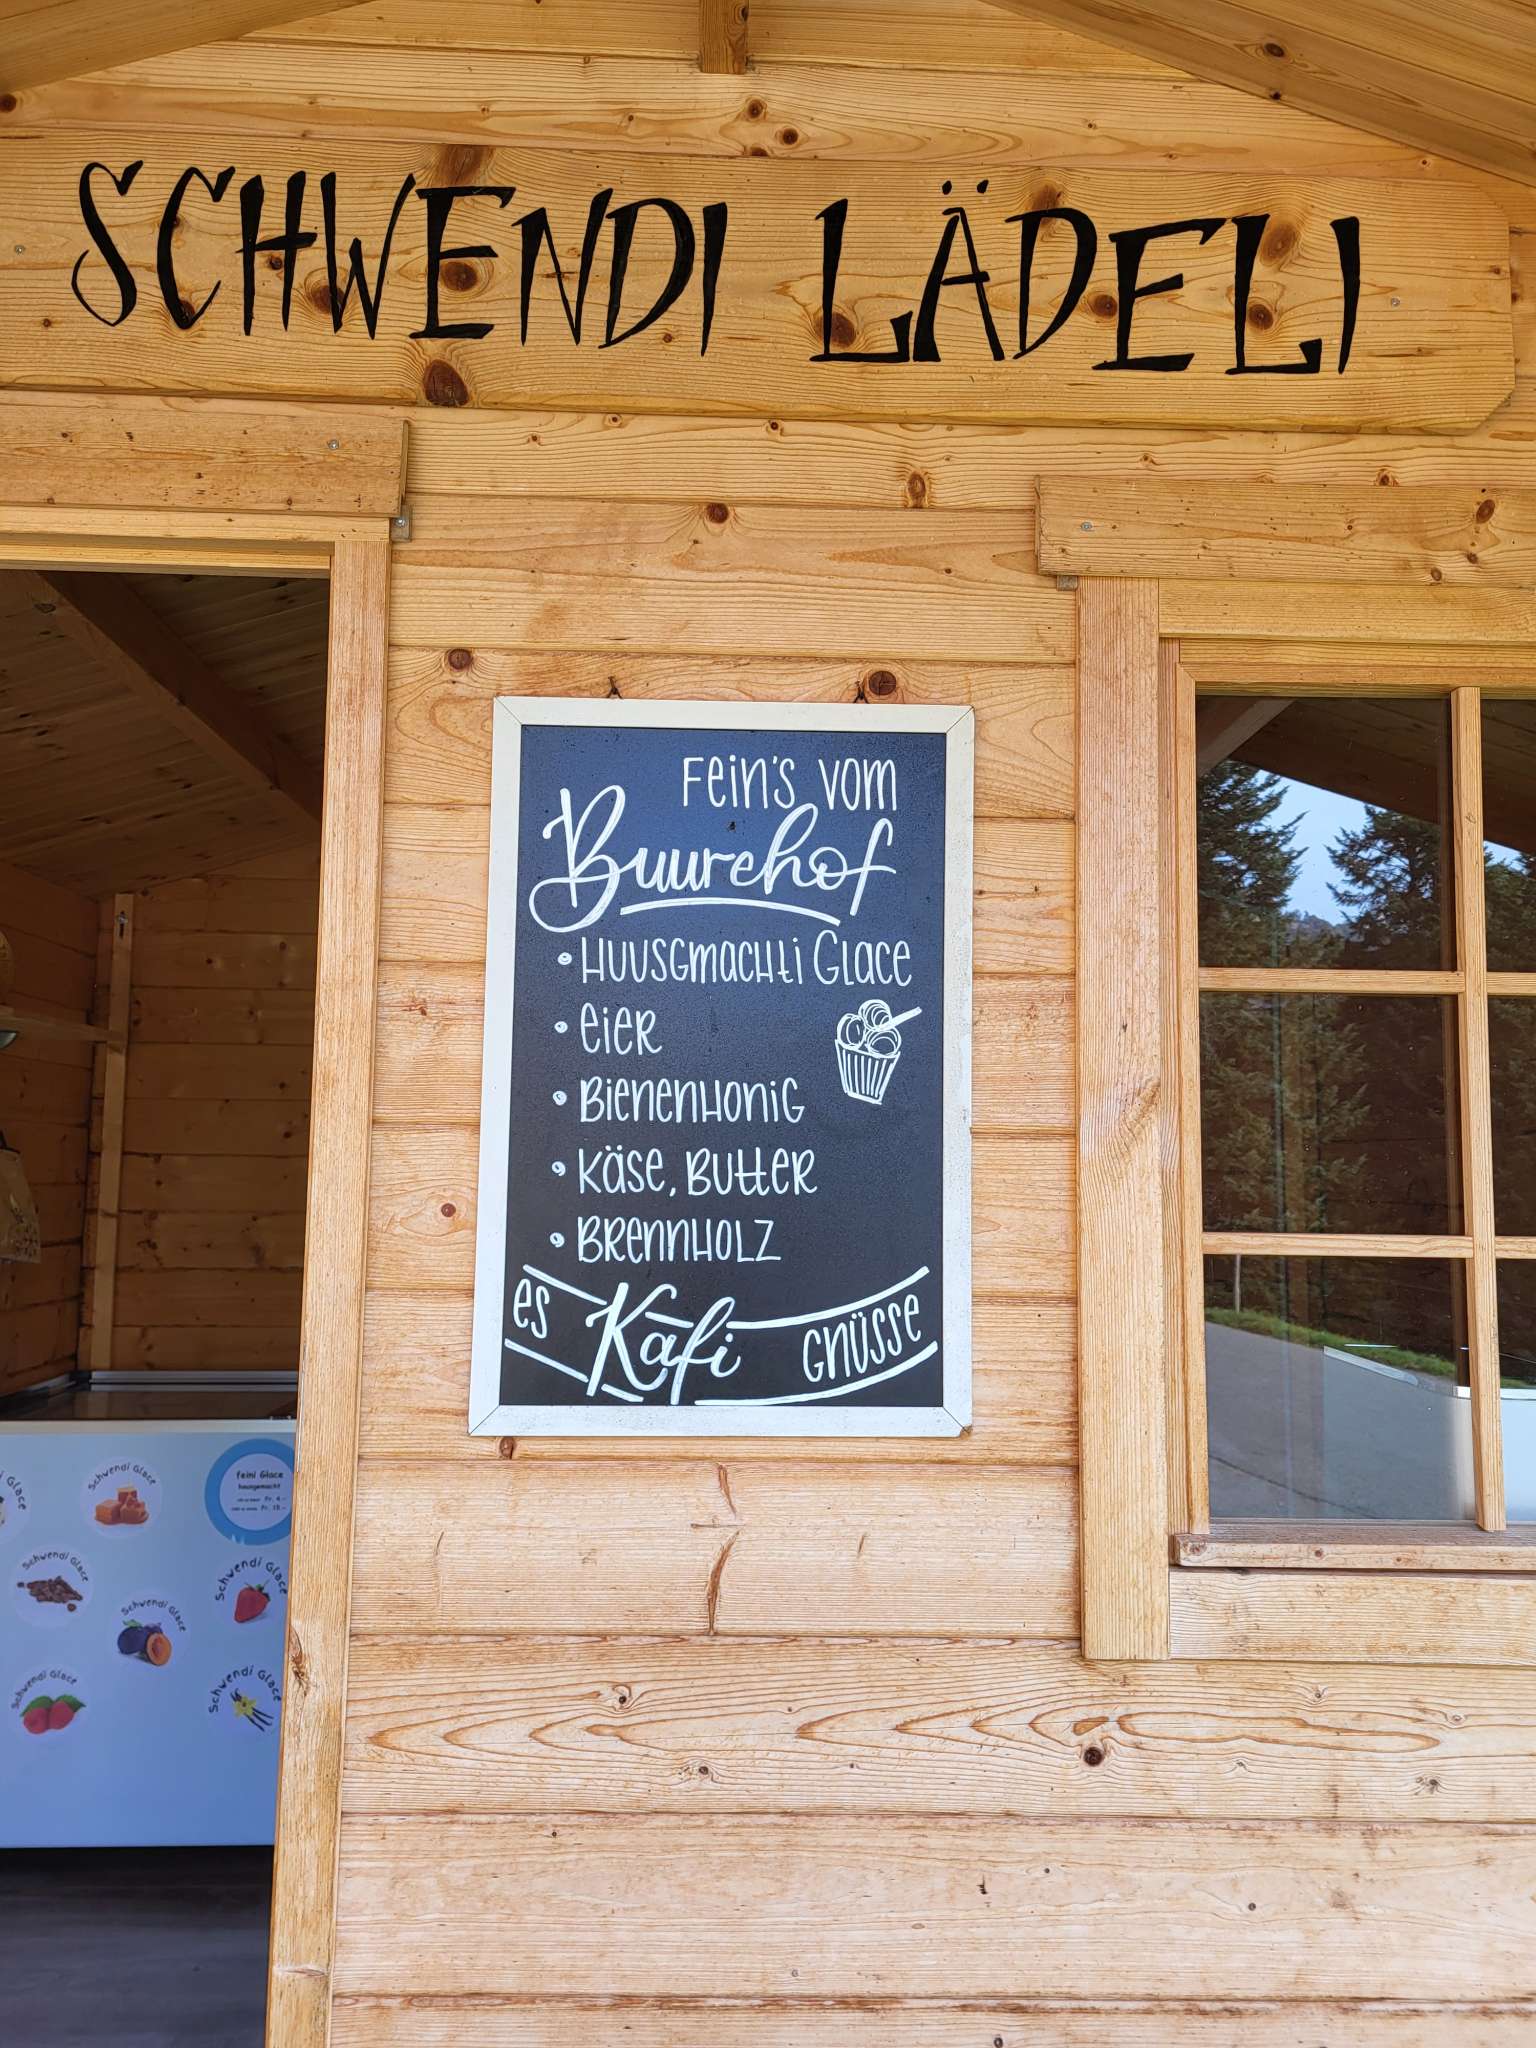 SCHWENDI LÄDELI
Fein's vom
Buurehof
• Huusgmachti Glace
• Eier
• Bienenhonig
• Käse, Butter
• Brennholz
es Kafi gnüsse
Schwendi Glace
feini Glace
hausgemacht
Fr. 4.-
Schwendi Glace
Schwendi Glace
Schwendi Glace
Schwendi Glace
Schwendi Glace